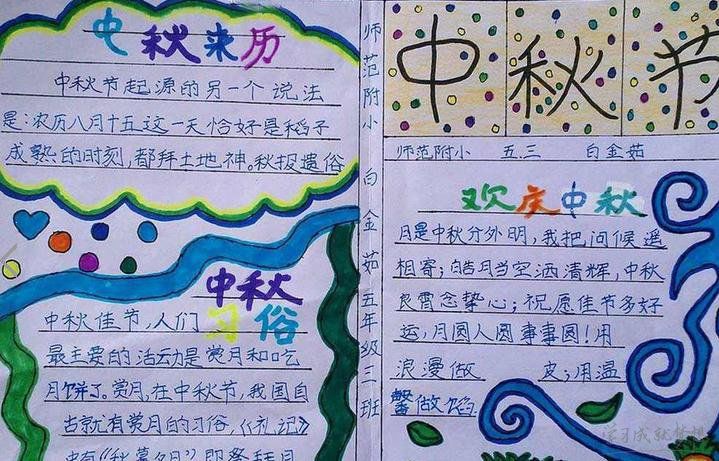 中秋来历
中秋节起源的另一个说法
是:农历八月十五这一天恰好是稻子
成熟的时刻,都拜土地神。秋报遗俗
中秋
习俗
中秋佳节,人们
最主爱的活动是赏月和吃
月饼了。赏月,在中秋节,我国自
古就有赏月的习俗,《礼记》
中有“秋暮夕月”即祭拜月
师范附小 白金茹 五年级三班
中秋节
师范附小 五.三 白金茹
欢庆中秋
月是中秋分外明,我把问候遥
相寄;皓月当空洒清辉,中秋
良宵念挚心;祝愿佳节多好
运,月圆人圆事事圆!用
浪漫做 皮;用温
馨做馅
学习成就梦想